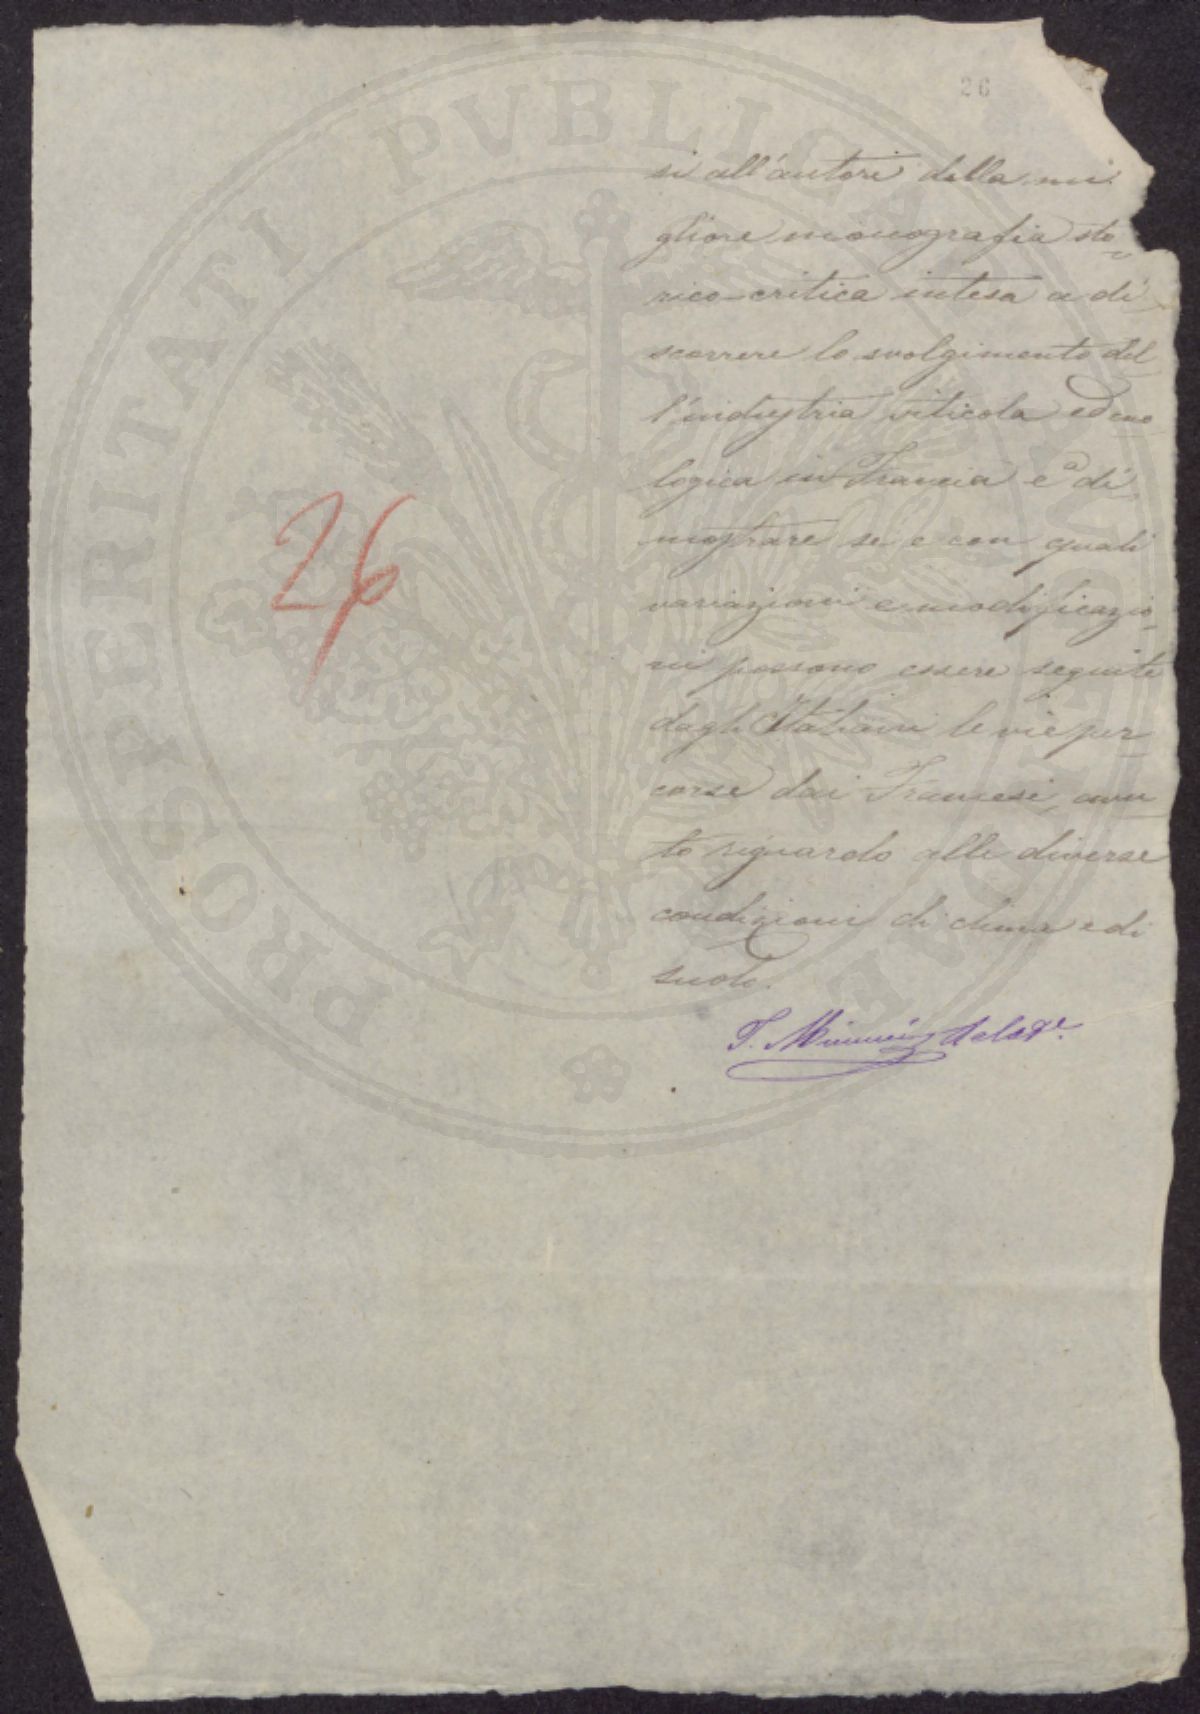 26
si all'autore della mi
gliore monografia sto
rico-critica intesa a di
scorrere lo svolgimento del
l'industria viticola ed eno
logica in Francia e a di
mostrare se e con quali
variazioni e modificazio
ni possono essere seguite
dagli Italiani le vie per
corse dai Francesi, avu
to riguardo alle diverse
condizioni di clima e di
suolo.
26
PROSPERITATI PVBLICAE